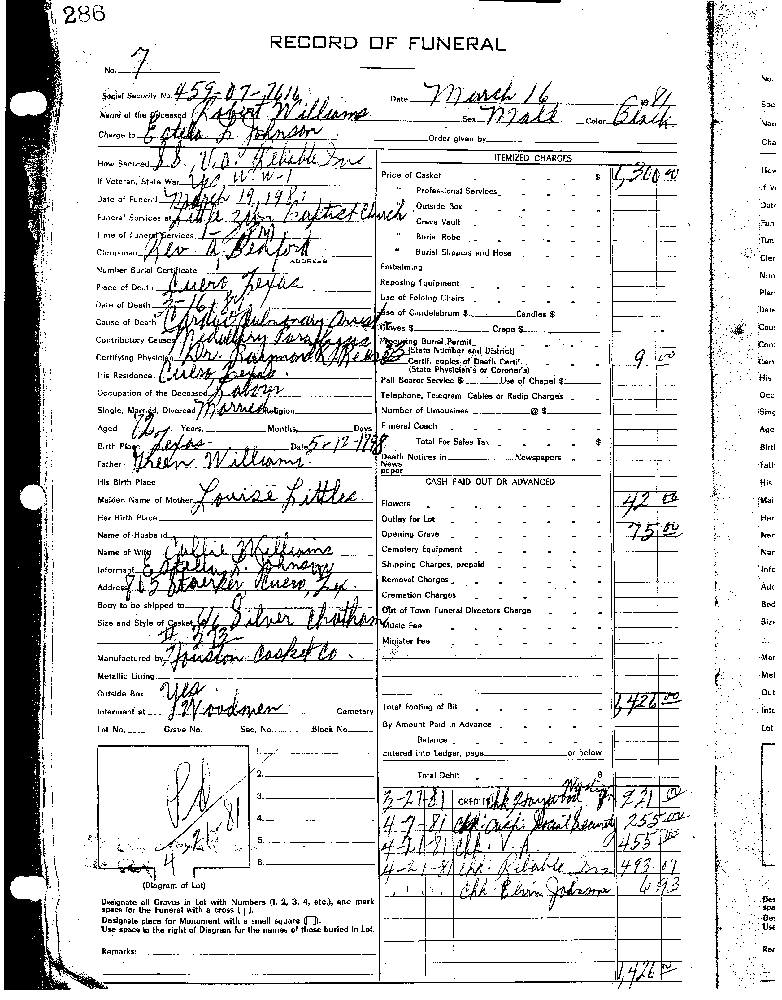 286
RECORD OF FUNERAL
No. 7
Social Security No. 459-07-7616
Date March 16 1981
Name of the Deceased Robert Williams
Sex Male Color Black
Charge to Estella L Johnson
Order given by
How Secured S.S. V.A. Reliable Ins
ITEMIZED CHARGES
If Veteran, State War Yes W.W-1
Price of Casket $ 1,300.00
Date of Funeral March 19, 198
" Professional Services
Funeral Services at Little Zion Baptist Church
" Outside Box
Time of Funeral Services 1-
" Grave Vault
Clergyman Rev A Benford
ADDRESS
" Burial Robe
" Burial Slippers and Hose
Number Burial Certificate
Embalming
Place of Death Cuero Texas
Reposing Equipment
Date of Death 3-16-81
Use of Folding Chairs
Cause of Death Cardio Pulmonary Arrest
Use of Candelabrum $ Candles $
Contributory Causes
Gloves $ Crepe $
Certifying Physician Dr. Raymond Reese
Procuring Burial Permit
(State Number and District)
His Residence Cuero Texas
Certif. copies of Death Certif. 9 00
(State Physician's or Coroner's)
Occupation of the Deceased Labory
Pall Bearer Service $ Use of Chapel $
Single, Married, Divorced Married Religion
Telephone, Telegram Cables or Radio Charges
Number of Limousines @ $
Aged Years, Months, Days
Funeral Coach
Birth Place Texas Date 5-12-1898
Total For Sales Tax $
Father Green Williams
Death Notices in Newspapers
News
paper
His Birth Place
CASH PAID OUT OR ADVANCED
Maiden Name of Mother Louise Littles
Flowers 42 00
Her Birth Place
Outlay for Lot
Name of Husband
Opening Grave 75 00
Name of Wife Callie Williams
Cemetery Equipment
Informant Estella L. Johnson
Shipping Charges, prepaid
Address 705 Stoerker Cuero, Tex.
Removal Charges
Cremation Charges
Body to be shipped to
Out of Town Funeral Directors Charge
Size and Style of Casket 6/6 Silver Chatham
# 373
Music Fee
Minister Fee
Manufactured by Houston Casket Co.
Metallic Lining
Outside Box Yes
Interment at Woodmen Cemetery
Total Footing of Bill 1,426 00
Lot No. Grave No. Sec. No. Block No.
By Amount Paid in Advance
Balance
Entered into Ledger, page or below
Total Debit $
1.
2.
3.
4.
5.
6.
Pd
4 81
3-27-81 CREDIT Chk Haywood 221 0
4-7-81 Chk: Social Security 255 00
4-21-81 Chk: V.A 455 00
4-21-81 Chk: Reliable Ins 493 07
Chk Elvin Johnson 6 93
(Diagram of Lot)
Designate all Graves in Lot with Numbers (1, 2, 3, 4, etc.), and mark
space for the Funeral with a cross (†).
Designate place for Monument with a small square (☐).
Use space to the right of Diagram for the names of those buried in Lot.
Remarks:
1,426 00